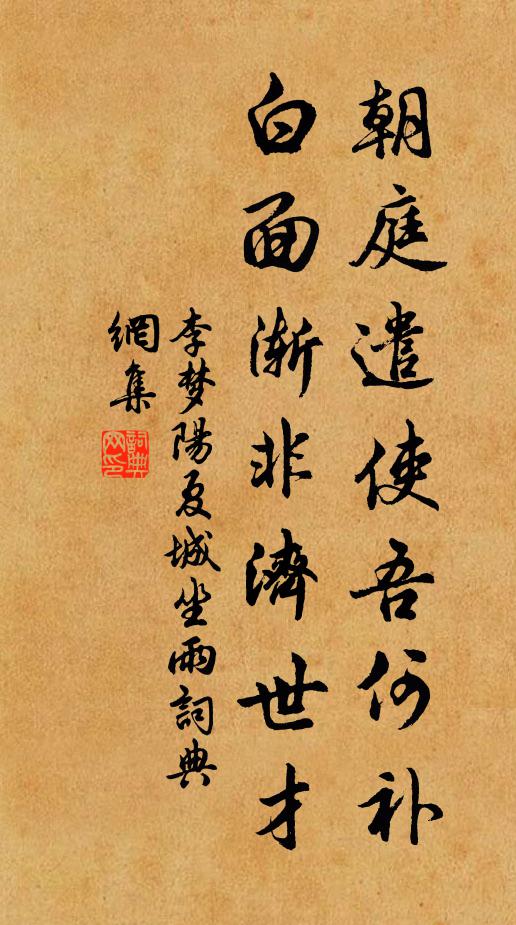 朝庭遣使吾何补
白面渐非濟世才
李梦陽夏城坐雨詞典
網集
詞典
网印